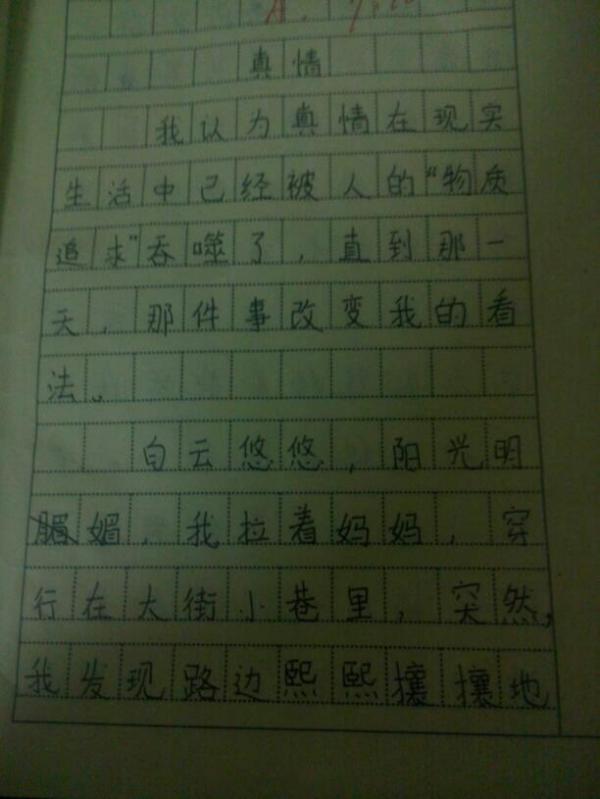 真情
我认为真情在现实
生活中已经被人的“物质
追求”吞噬了，直到那一
天，那件事改变我的看
法。
白云悠悠，阳光明
媚，我拉着妈妈，穿
行在大街小巷里，突然，
我发现路边熙熙攘攘地